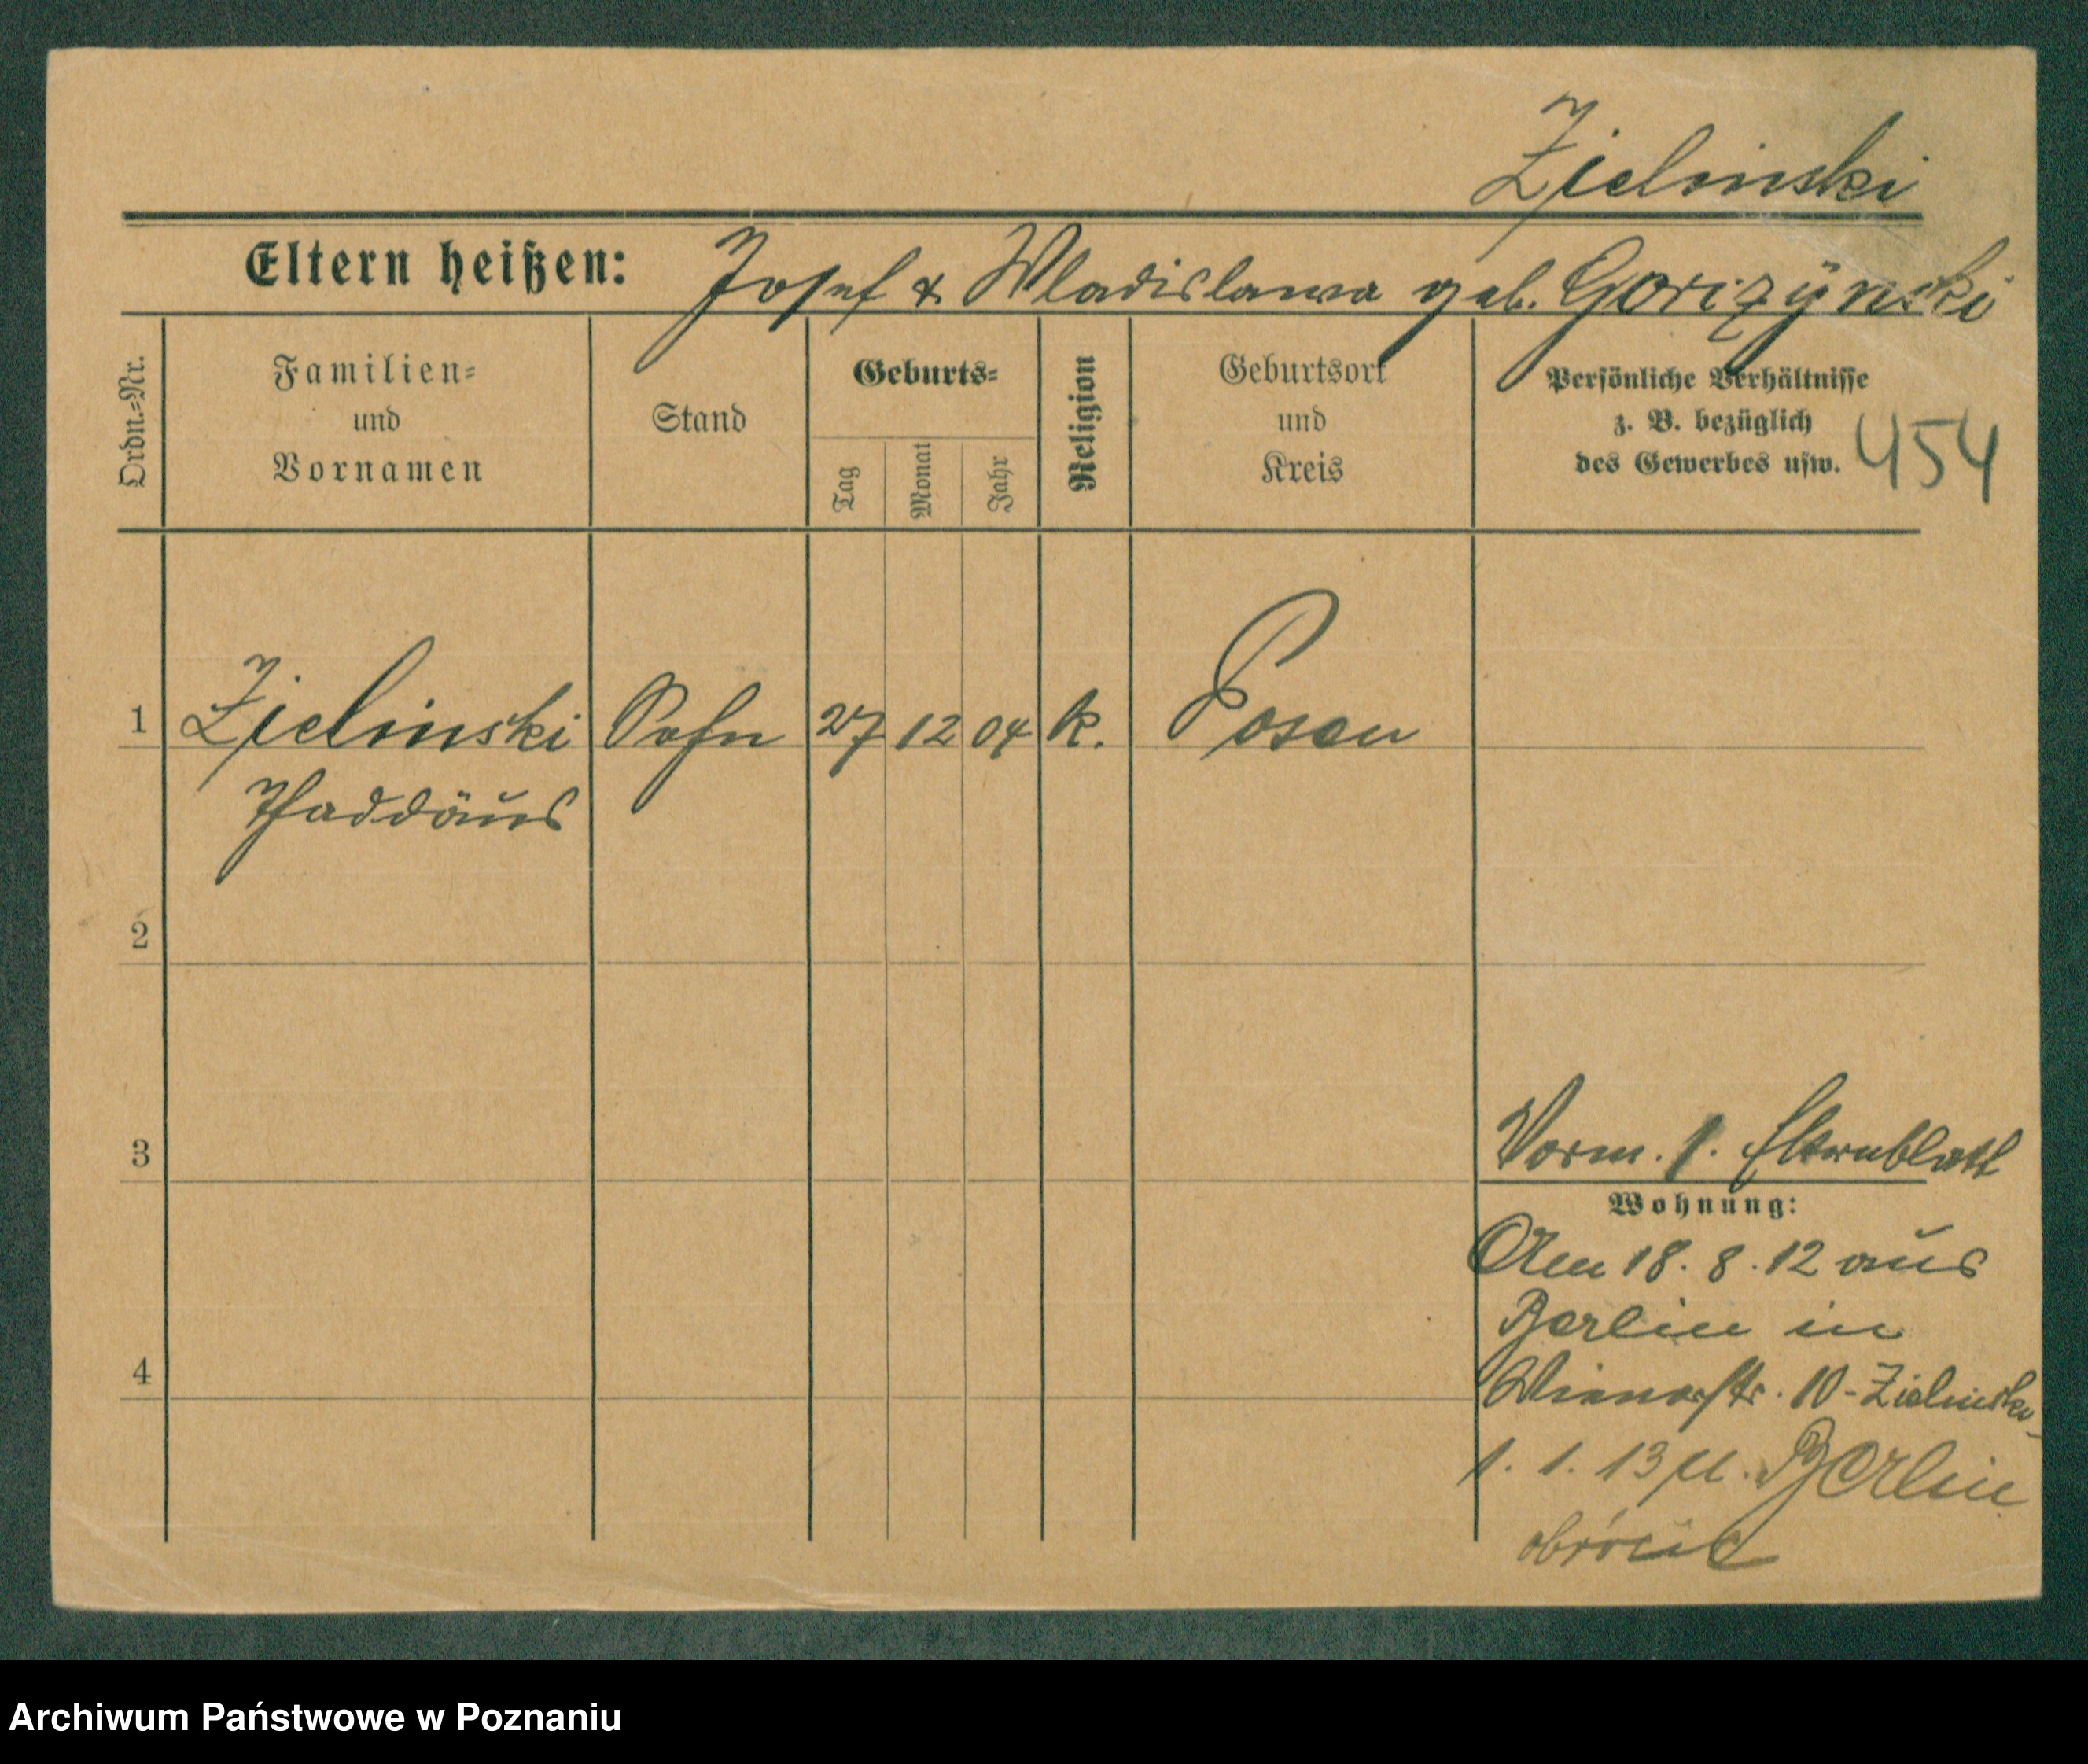 Zielinski
Eltern heißen: Josef & Wladislawa geb. Gorizynski
Ordn.-Nr.
Familien- und Vornamen
Stand
Geburts-
Tag
Monat
Jahr
Religion
Geburtsort und Kreis
Persönliche Verhältnisse
z. B. bezüglich
des Gewerbes usw.
454
1 Zielinski Sohn 27 12 04 k. Posen
Thaddäus
2
3
Vorm. s. Elternblatt
Wohnung:
Am 18. 8. 12 aus
Berlin in
4
Wienerstr. 10 - Zielinski
1. 1. 13 Berlin
obrócić
Archiwum Państwowe w Poznaniu